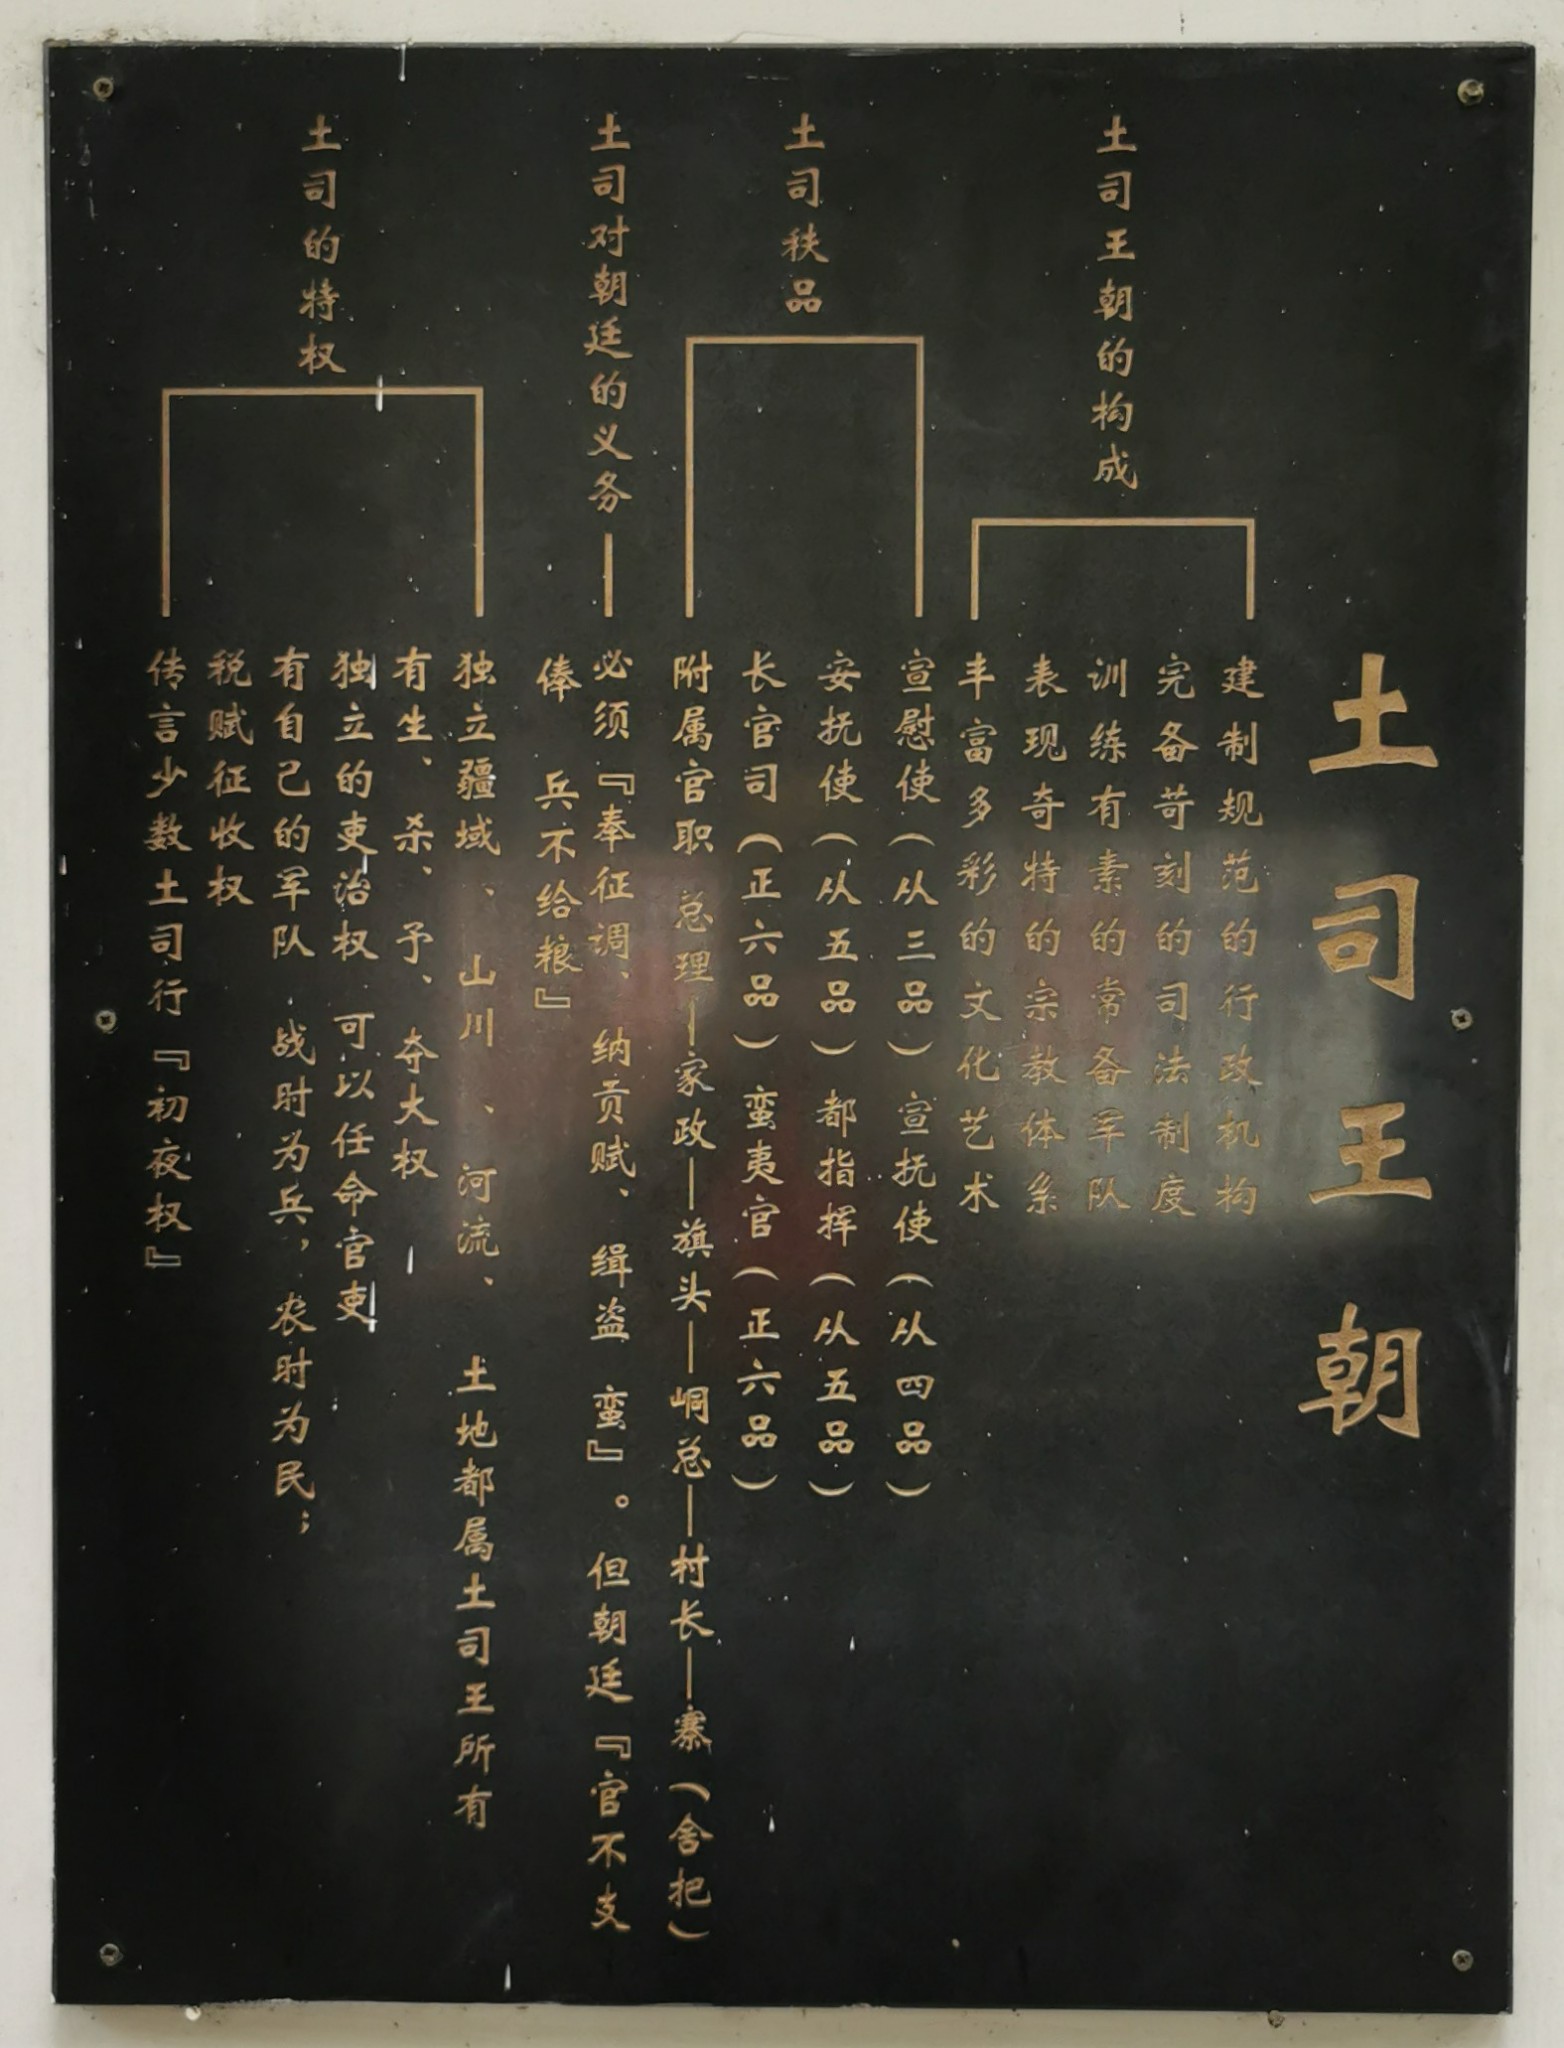 土司王朝
土司王朝的构成
建制规范的行政机构
完备苛刻的司法制度
训练有素的常备军队
表现奇特的宗教体系
丰富多彩的文化艺术
土司秩品
宣慰使（从三品） 宣抚使（从四品）
安抚使（从五品） 都指挥（从五品）
长官司（正六品） 蛮夷官（正六品）
附属官职 总理—家政—旗头—峒总—村长—寨（舍把）
土司对朝廷的义务
必须『奉征调、纳贡赋、缉盗 蛮』。但朝廷『官不支
俸 兵不给粮』
土司的特权
独立疆域、山川、河流、 土地都属土司王所有
有生、杀、予、夺大权
独立的吏治权 可以任命官吏
有自己的军队 战时为兵，农时为民；
税赋征收权
传言少数土司行『初夜权』